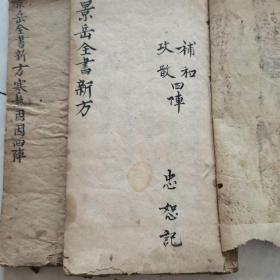 補和
攻散
四陣
忠恕記
景岳全書新方
景岳全書新方寒熱固因四陣